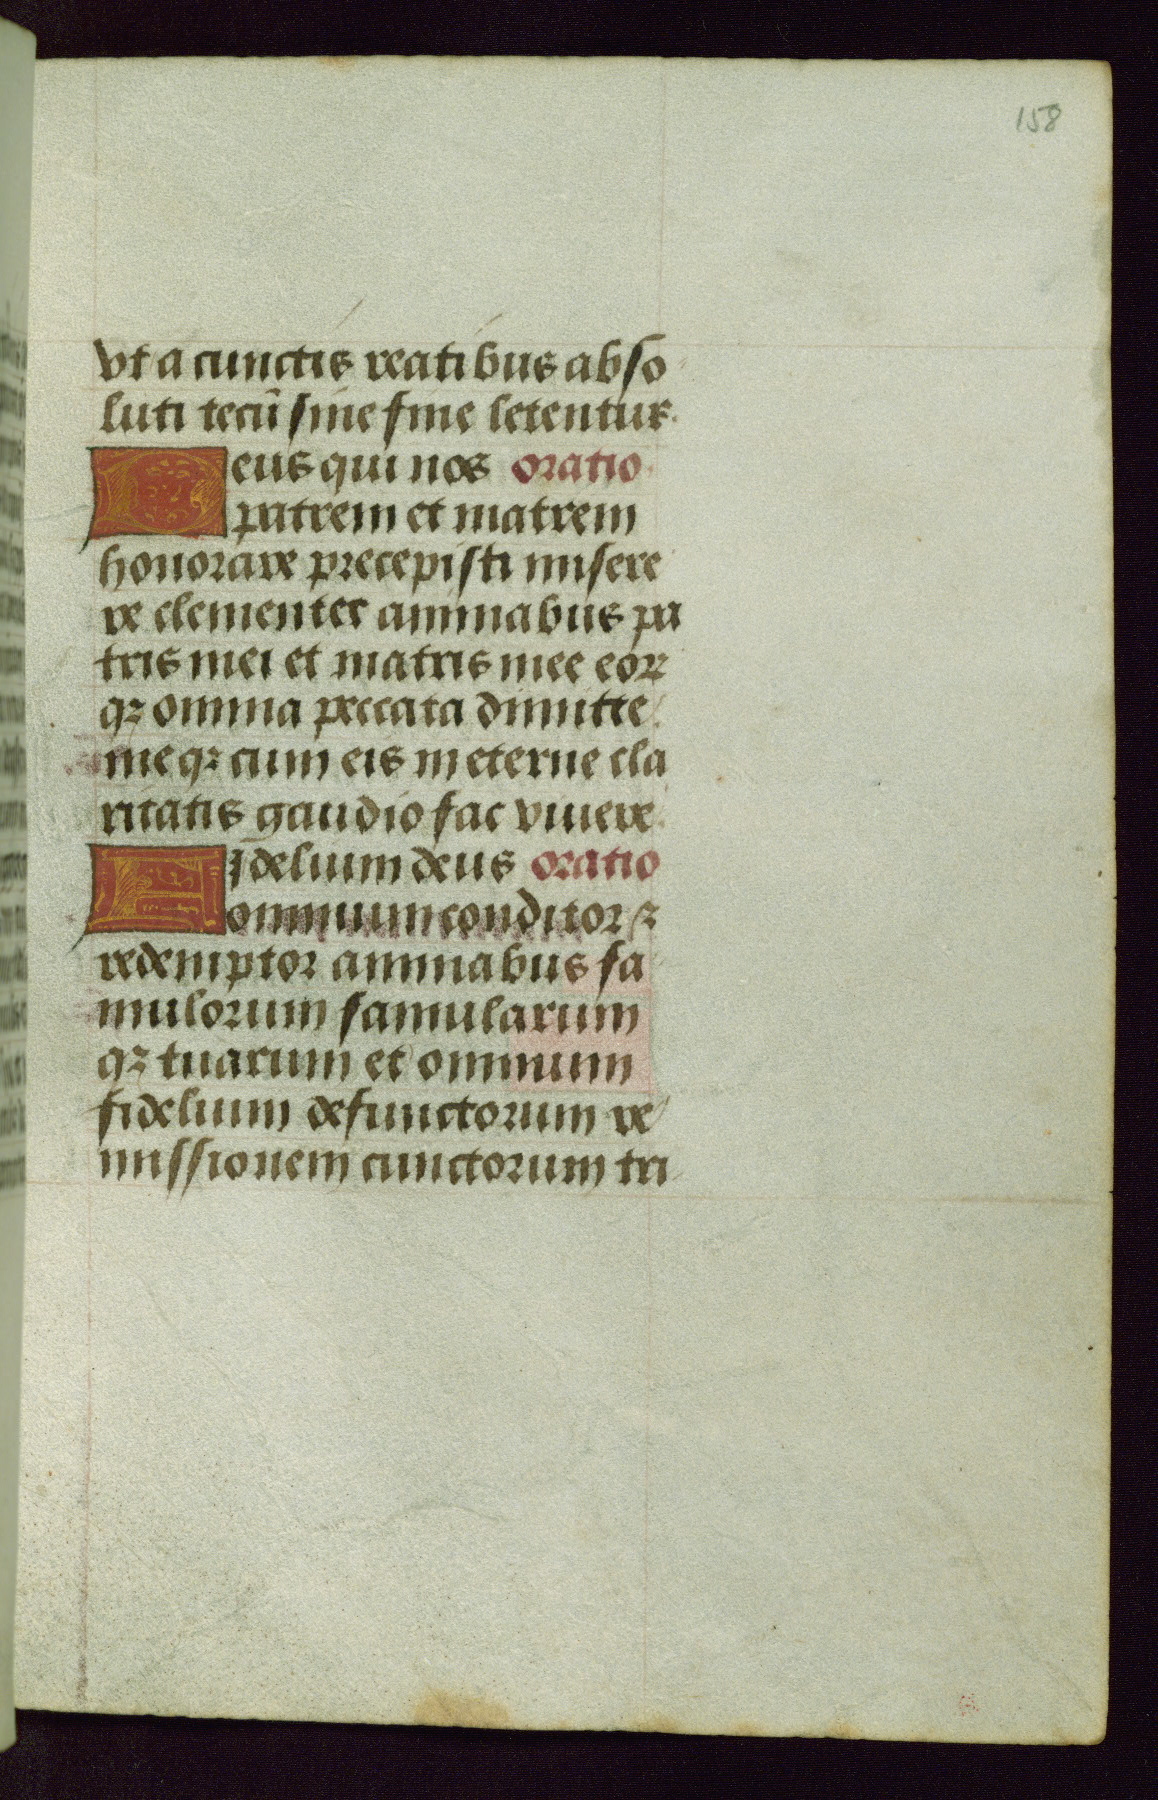 158
vt a cunctis reatibus abso
luti tecū sine fine letentur.
Deus qui nos oratio.
patrem et matrem
honorare precepisti misere
re clementer animabus pa
tris mei et matris mee eoꝝ
qꝫ omnia peccata dimitte.
meqꝫ cum eis in eterne cla
ritatis gaudio fac viuere.
Fidelium deus oratio
omnium conditor ⁊
redemptor animabus fa
mulorum famularum
qꝫ tuarum et omnium
fidelium defunctorum re
missionem cunctorum tri